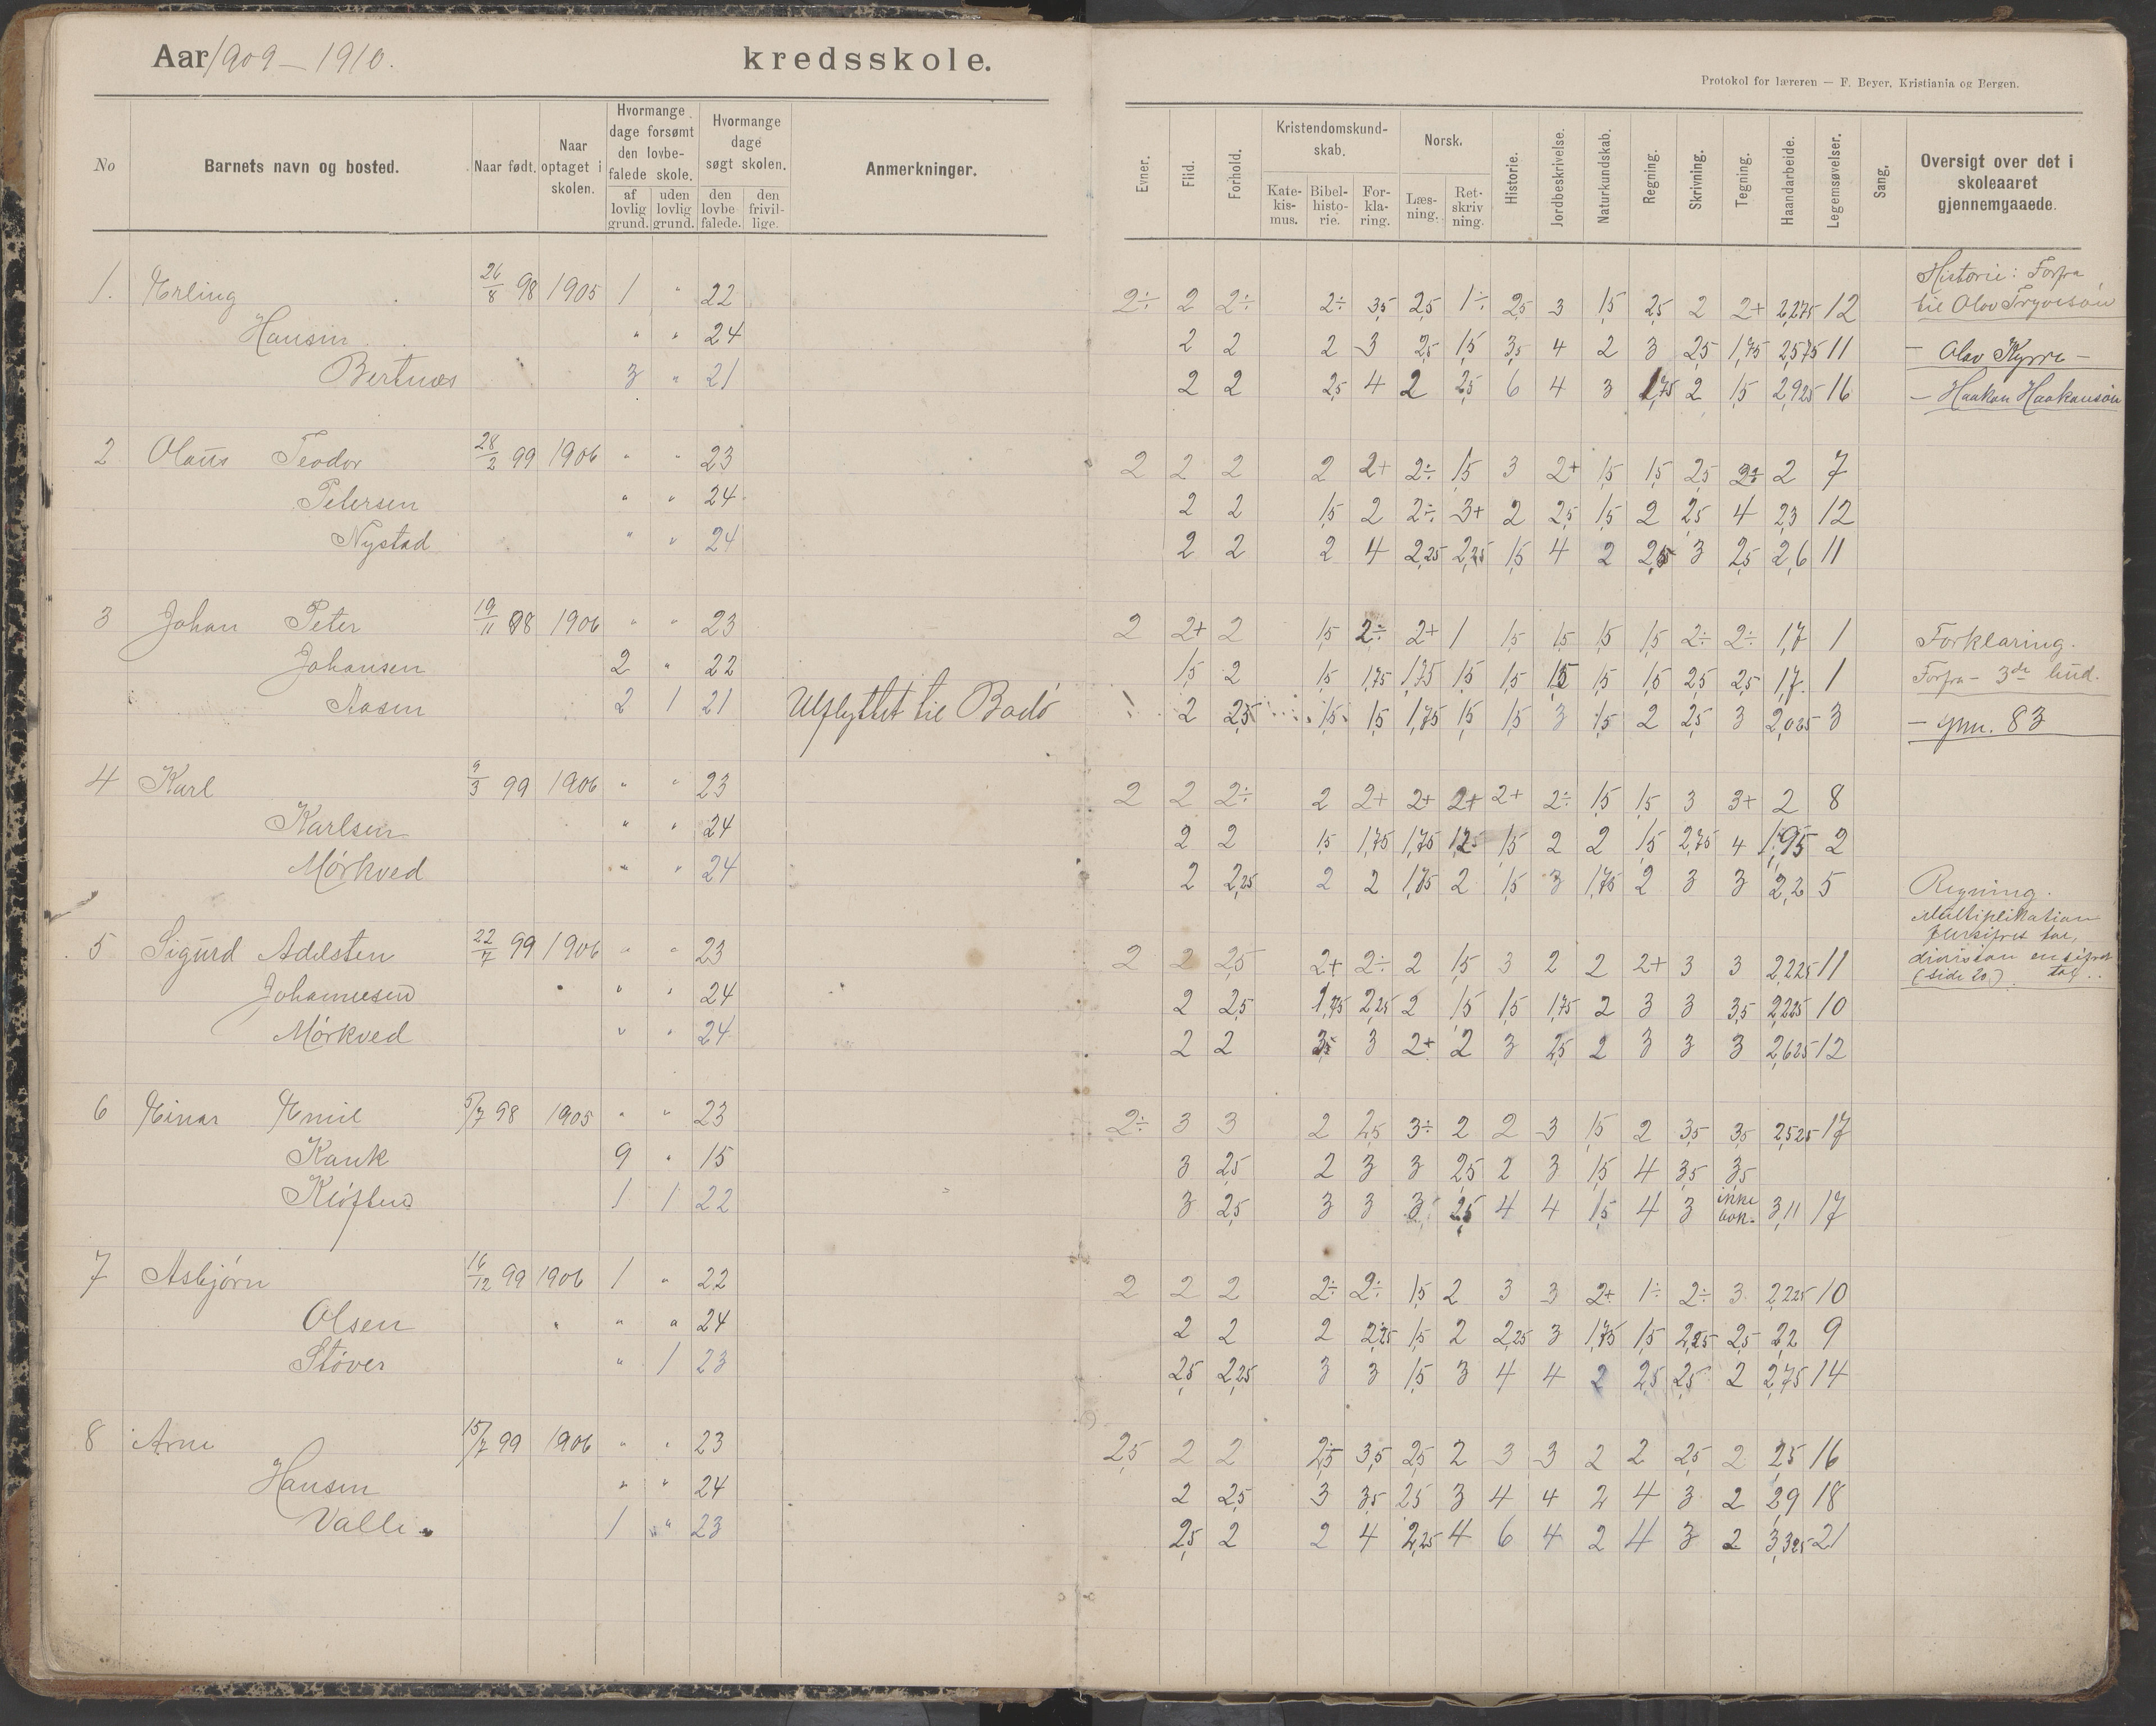 Aar 1909 – 1910. kredsskole.
Protokol for læreren — F. Beyer, Kristiania og Bergen.
No Barnets navn og bosted. Naar født. Naar optaget i skolen. Hvormange dage forsømt den lovbefalede skole. af lovlig grund. uden lovlig grund. Hvormange dage søgt skolen. den lovbefalede. den frivillige. Anmerkninger.
Evner. Flid. Forhold. Kristendomskundskab. Katekismus. Bibelhistorie. Forklaring. Norsk. Læsning. Retskrivning. Historie. Jordbeskrivelse. Naturkundskab. Regning. Skrivning. Tegning. Haandarbeide. Legemsøvelser. Sang. Oversigt over det i skoleaaret gjennemgaaede.
1. Erling 26/8 98 1905 1 " 22 2÷ 2 2÷ 2÷ 3,5 2,5 1÷ 2,5 3 1,5 2,5 2 2+ 2,275 12 Historie: Forfra til Olav Trygvesøn
Hansen " " 24 2 2 2 3 2,5 1,5 3,5 4 2 3 2,5 1,75 2,575 11 – Olav Kyrre –
Bertnes 3 " 21 2 2 2,5 4 2 2,5 6 4 3 1,75 2 1,5 2,925 16 – Haakon Haakonsøn
2 Olaus Teodor 28/2 99 1906 " " 23 2 2 2 2 2+ 2÷ 1,5 3 2+ 1,5 1,5 2,5 2÷ 2 7
Petersen " " 24 2 2 1,5 2 2÷ 3+ 2 2,5 1,5 2 2,5 4 2,3 12
Nystad " " 24 2 2 2 4 2,25 2,25 1,5 4 2 2,5 3 2,5 2,6 11
3 Johan Peter 19/11 98 1906 " " 23 2 2+ 2 1,5 2÷ 2+ 1 1,5 1,5 1,5 1,5 2÷ 2÷ 1,7 1 Forklaring.
Johansen 2 " 22 1,5 2 1,5 1,75 1,75 1,5 1,5 1,5 1,5 1,5 2,5 2,5 1,7 1 Forfra – 3de bud.
Aasen 2 1 21 Utflyttet til Bodö 2 2,5 1,5 1,5 1,75 1,5 1,5 3 1,5 2 2,5 3 2,025 3 – spm. 83
4 Karl 9/3 99 1906 " " 23 2 2 2÷ 2 2+ 2+ 2+ 2+ 2÷ 1,5 1,5 3 3+ 2 8
Karlsen " " 24 2 2 1,5 1,75 1,75 1,25 1,5 2 2 1,5 2,75 4 1,95 2
Mörkved " " 24 2 2,25 2 2 1,75 2 1,5 3 1,75 2 3 3 2,2 5 Regning.
Multiplikation flersifret tal, division ensifret tal. (side 20.)
5 Sigurd Adelsten 22/7 99 1906 " " 23 2 2 2,5 2+ 2÷ 2 1,5 3 2 2 2+ 3 3 2,225 11
Johannesen " " 24 2 2,5 1,75 2,25 2 1,5 1,5 1,75 2 3 3 3,5 2,225 10
Mörkved " " 24 2 2 3,5 3 2+ 2 3 2,5 2 3 3 3 2,625 12
6 Einar Emil 5/7 98 1905 " " 23 2÷ 3 3 2 2,5 3÷ 2 2 3 1,5 2 3,5 3,5 2,525 17
Kank 9 " 15 3 2,5 2 3 3 2,5 2 3 1,5 4 3,5 3,5
Klöften 1 1 22 3 2,5 3 3 3 2,5 4 4 1,5 4 3 ikke bok. 3,11 17
7 Asbjörn 16/12 99 1906 1 " 22 2 2 2 2÷ 2÷ 1,5 2 3 3 2+ 1÷ 2÷ 3 2,225 10
Olsen " " 24 2 2 2 2,25 1,5 2 2,25 3 1,75 1,5 2,25 2,5 2,2 9
Stöver " 1 23 2,5 2,25 3 3 1,5 3 4 4 2 2,5 2,5 2 2,75 14
8 Arne 15/7 99 1906 " " 23 2,5 2 2 2,5 3,5 2,5 2 3 3 2 2 2,5 2 2,5 16
Hansen " " 24 2 2,5 3 3,5 2,5 3 4 4 2 4 3 2 2,9 18
Valle. 1 " 23 2,5 2 2 4 2,25 4 6 4 2 4 3 2 3,325 21